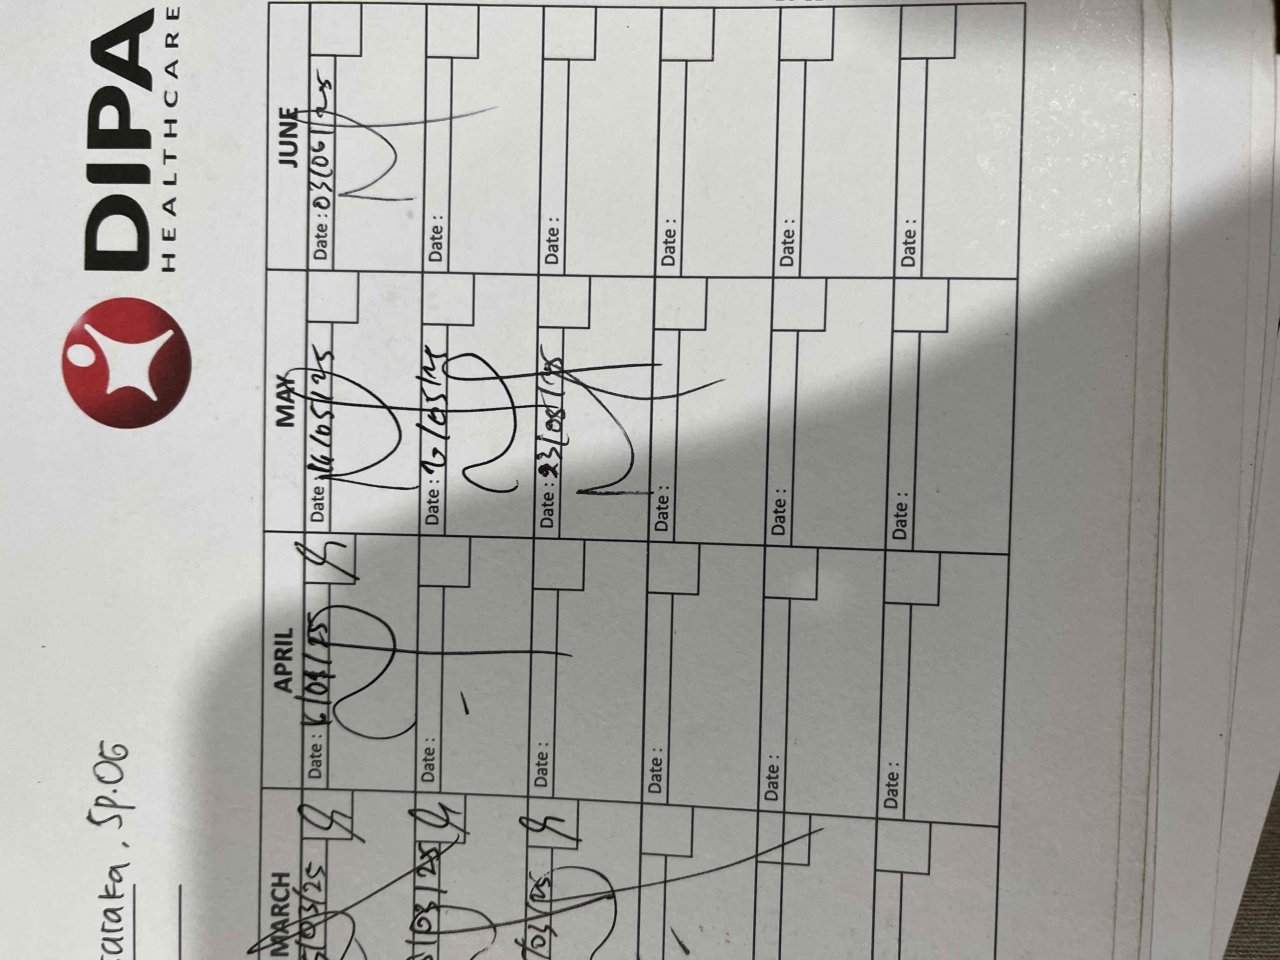 DIPA
HEALTHCARE
saraka, Sp.OG
MARCH
APRIL
MAY
JUNE
/03/25
Date : 16/04/25
Date : 14/05/25
Date : 03/06/25
/03/25
Date :
Date : 21/05/25
Date :
/03/25
Date :
Date : 23/05/25
Date :
Date :
Date :
Date :
Date :
Date :
Date :
Date :
Date :
Date :